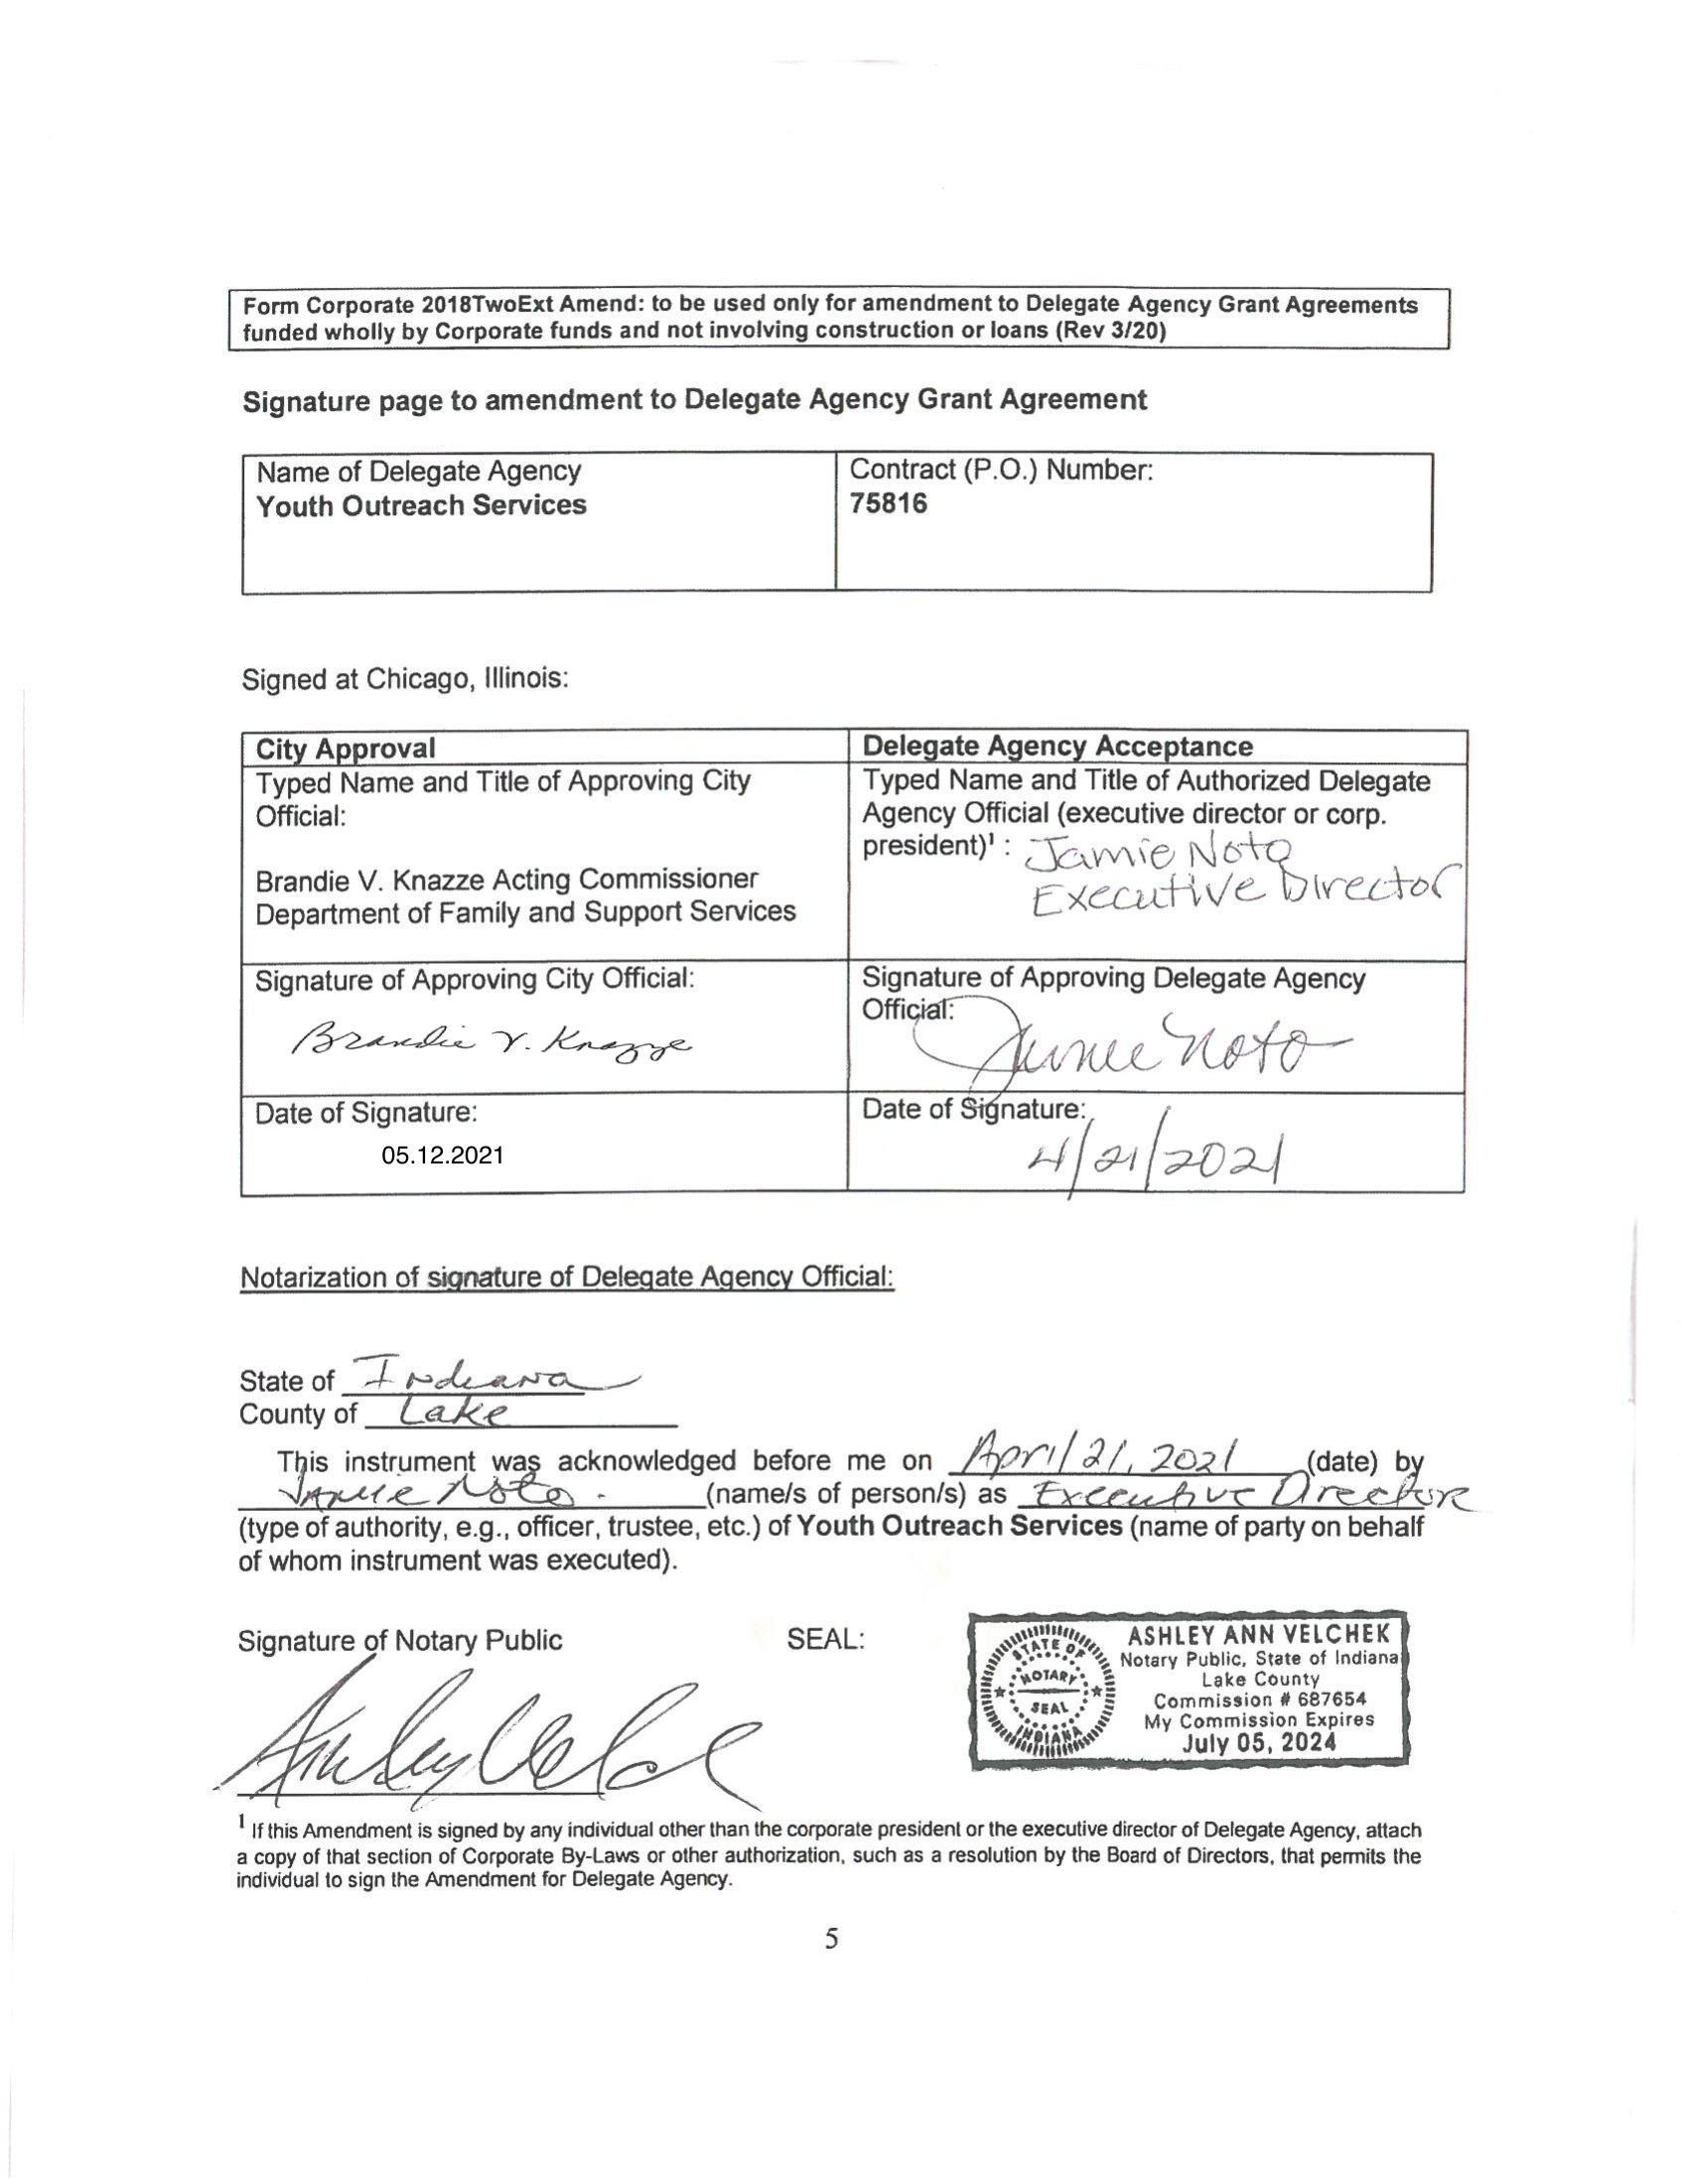 Form Corporate 2018TwoExt Amend: to be used only for amendment to Delegate Agency Grant Agreements
funded wholly by Corporate funds and not involving construction or loans (Rev 3/20)
Signature page to amendment to Delegate Agency Grant Agreement
Name of Delegate Agency
Youth Outreach Services
Contract (P.O.) Number:
75816
Signed at Chicago, Illinois:
City Approval
Typed Name and Title of Approving City
Official:
Brandie V. Knazze Acting Commissioner
Department of Family and Support Services
Delegate Agency Acceptance
Typed Name and Title of Authorized Delegate
Agency Official (executive director or corp.
president)¹ : Jamie Noto
Executive Director
Signature of Approving City Official:
Brandie V. Knazze
Signature of Approving Delegate Agency
Official:
Jamie Noto
Date of Signature:
05.12.2021
Date of Signature:
4/21/2021
Notarization of signature of Delegate Agency Official:
State of Indiana
County of Lake
This instrument was acknowledged before me on April 21, 2021 (date) by
Jamie Noto. (name/s of person/s) as Executive Director
(type of authority, e.g., officer, trustee, etc.) of Youth Outreach Services (name of party on behalf
of whom instrument was executed).
Signature of Notary Public
SEAL:
STATE OF
NOTARY
SEAL
INDIANA
ASHLEY ANN VELCHEK
Notary Public, State of Indiana
Lake County
Commission # 687654
My Commission Expires
July 05, 2024
¹ If this Amendment is signed by any individual other than the corporate president or the executive director of Delegate Agency, attach
a copy of that section of Corporate By-Laws or other authorization, such as a resolution by the Board of Directors, that permits the
individual to sign the Amendment for Delegate Agency.
5